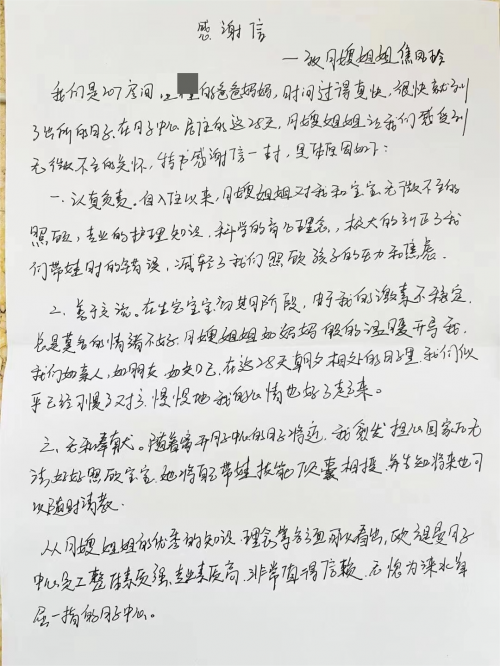 感谢信
——致月嫂姐姐焦凤玲
我们是207房间 的爸爸妈妈,时间过得真快,很快就到
了出所的日子.在月子中心居住的这28天,月嫂姐姐让我们感受到
无微不至的关怀,特书感谢信一封,具体原因如下:
一.认真负责.自入住以来,月嫂姐姐对我和宝宝无微不至的
照顾,专业的护理知识.科学的育儿理念,极大的纠正了我
们带娃时的错误,减轻了我们照顾孩子的压力和焦急.
二.善于交谈.在生完宝宝的其月阶段,由于我的激素不稳定,
总是莫名的情绪不好.月嫂姐姐如妈妈般的温暖开导我,
我们如亲人,如朋友 如知己.在这28天朝夕相处的日子里,我们似
乎已经习惯了对方.慢慢地 我的心情也好了起来。
三.无私奉献.随着离开月子中心的日子将近,我愈发担心回家后无
法好好照顾宝宝.她将自己带娃技能倾囊相授,并告知将来也可
以随时请教.
从月嫂姐姐的优秀的知识.理念等方面可以看出,欧 是月子
中心员工整体素质强,专业素质高.非常值得信赖.无愧为涞水首
屈一指的月子中心。